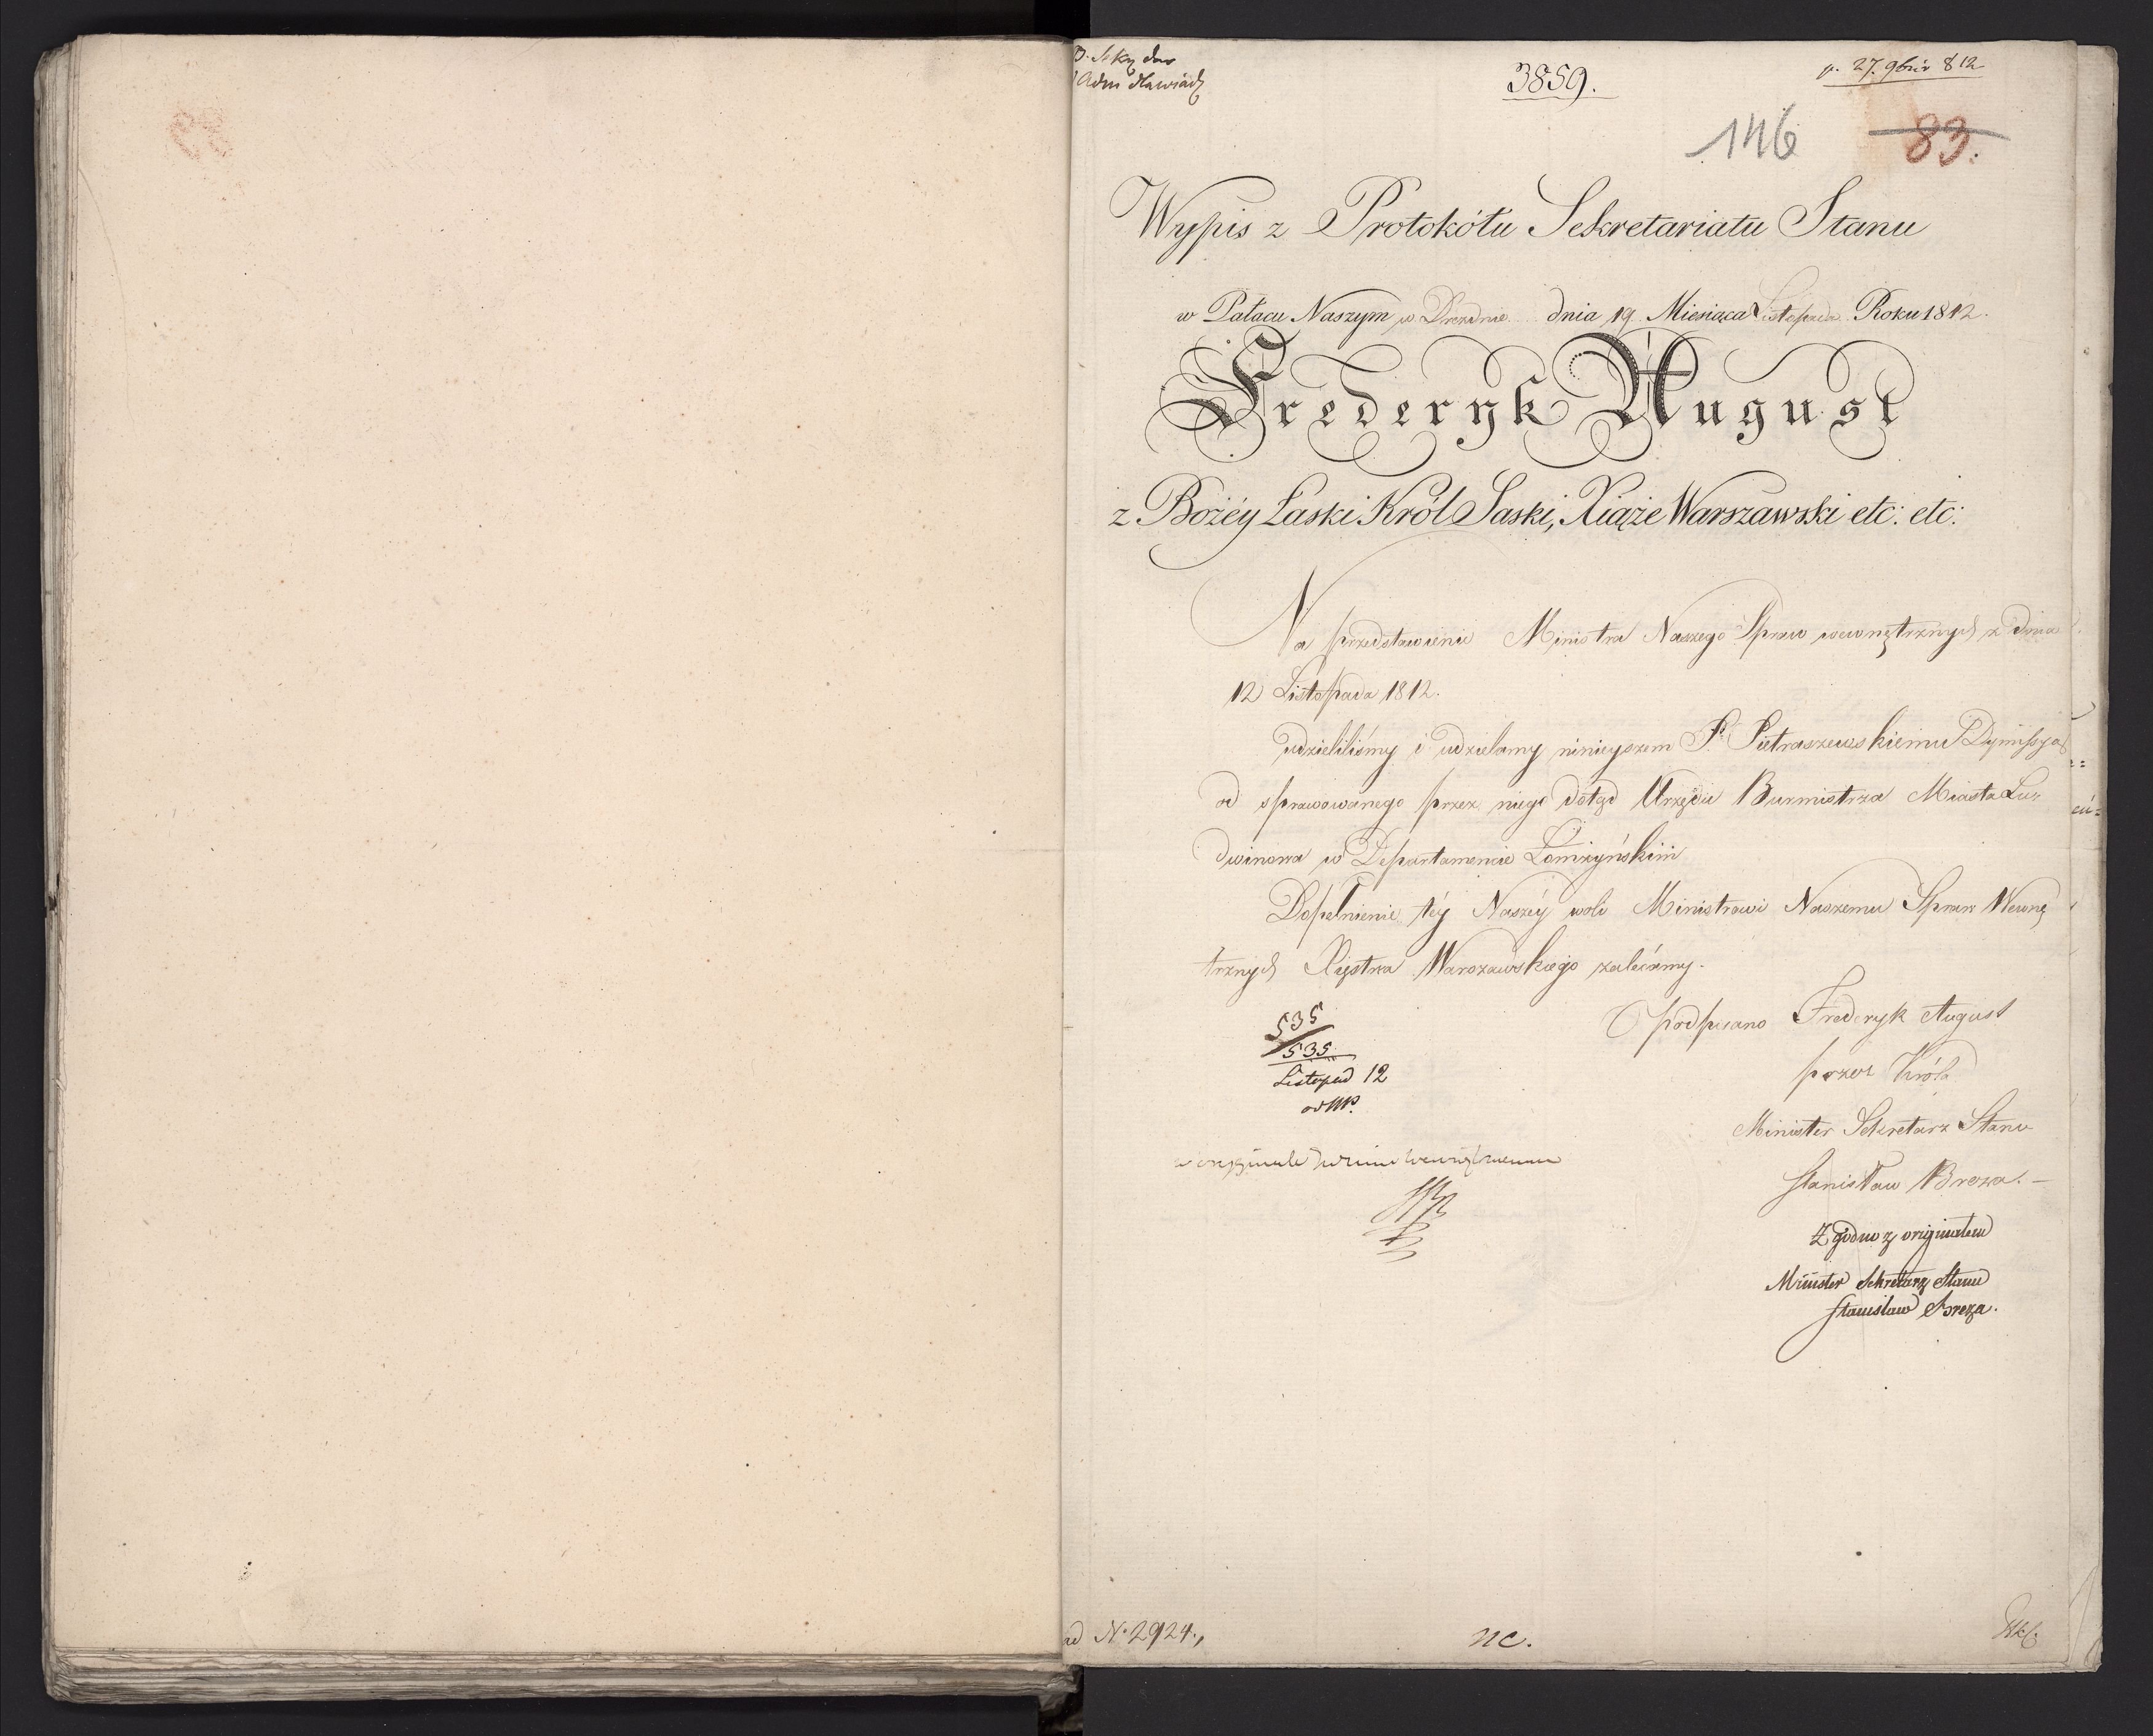 3859.
p. 27. 9bris 812
146 83.
Wypis z Protokółu Sekretariatu Stanu
w Pałacu Naszym w Dreznie dnia 19 Miesiąca Listopada Roku 1812.
Frederyk August
z Bożéy Łaski Król Saski, Xiąże Warszawski etc: etc:
Na przedstawienie Ministra Naszego Spraw wewnętrznych z dnia
12 Listopada 1812.
udzieliliśmy i udzielamy ninieyszem P. Pietraszewskiemu Dymissyą
od sprawowanego przez niego dotąd Urzędu Burmistrza Miasta Lu-
dwinowa w Departamencie Łomżyńskim
Dopełnienie téy Naszéy woli Ministrowi Naszemu Spraw Wewnę
trznych Xięstwa Warszawskiego zalecamy.
podpisano Frederyk August
przez Króla
Minister Sekretarz Stanu
Stanisław Breza.
535
535
Listopad 12
Zgodno z originałem
Minister Sekretarz Stanu
Stanisław Breza.
ad N. 2924.,
nc.